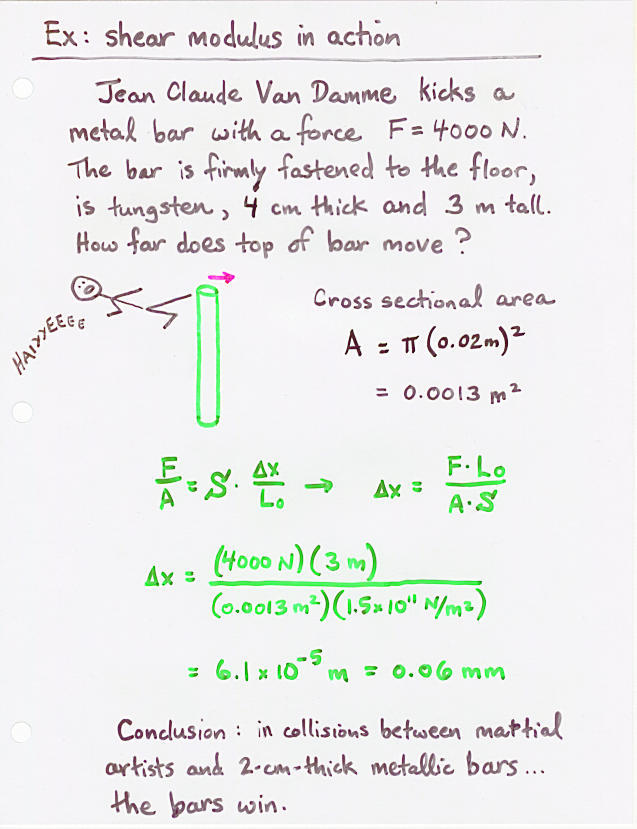 Ex: shear modulus in action
Jean Claude Van Damme kicks a
metal bar with a force F = 4000 N.
The bar is firmly fastened to the floor,
is tungsten, 4 cm thick and 3 m tall.
How far does top of bar move?
HAIYYEEEE
Cross sectional area
A = π(0.02m)²
= 0.0013 m²
F/A = S · Δx/L₀ → Δx = F·L₀/A·S
Δx = (4000 N)(3 m)/(0.0013 m²)(1.5x10¹¹ N/m²)
= 6.1 x 10⁻⁵ m = 0.06 mm
Conclusion: in collisions between martial
artists and 2-cm-thick metallic bars...
the bars win.